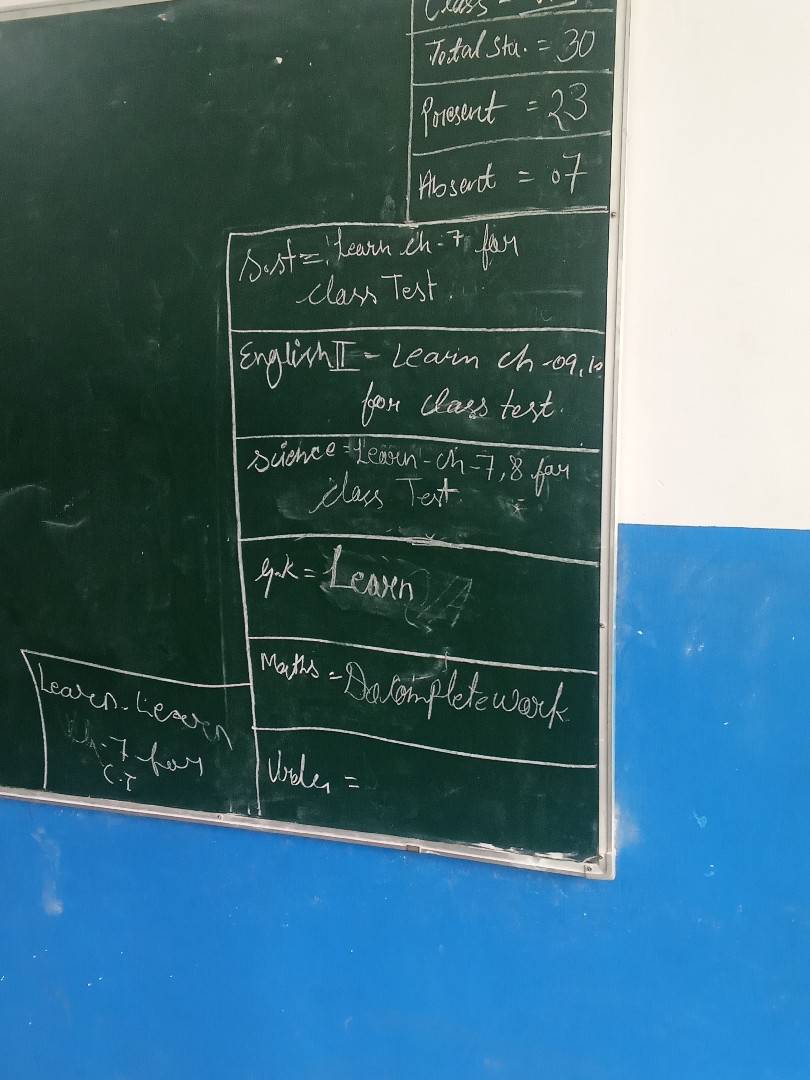 Class =
Total Stu. = 30
Present = 23
Absent = 07
S.st = Learn ch-7 for
class Test.
English II = Learn ch-09,10
for class test.
Science = Learn-ch-7,8 for
class Test
G.K = Learn
Maths = Do Complete work
Urdu =
Learn-Learn
Ch-7 for
C.T